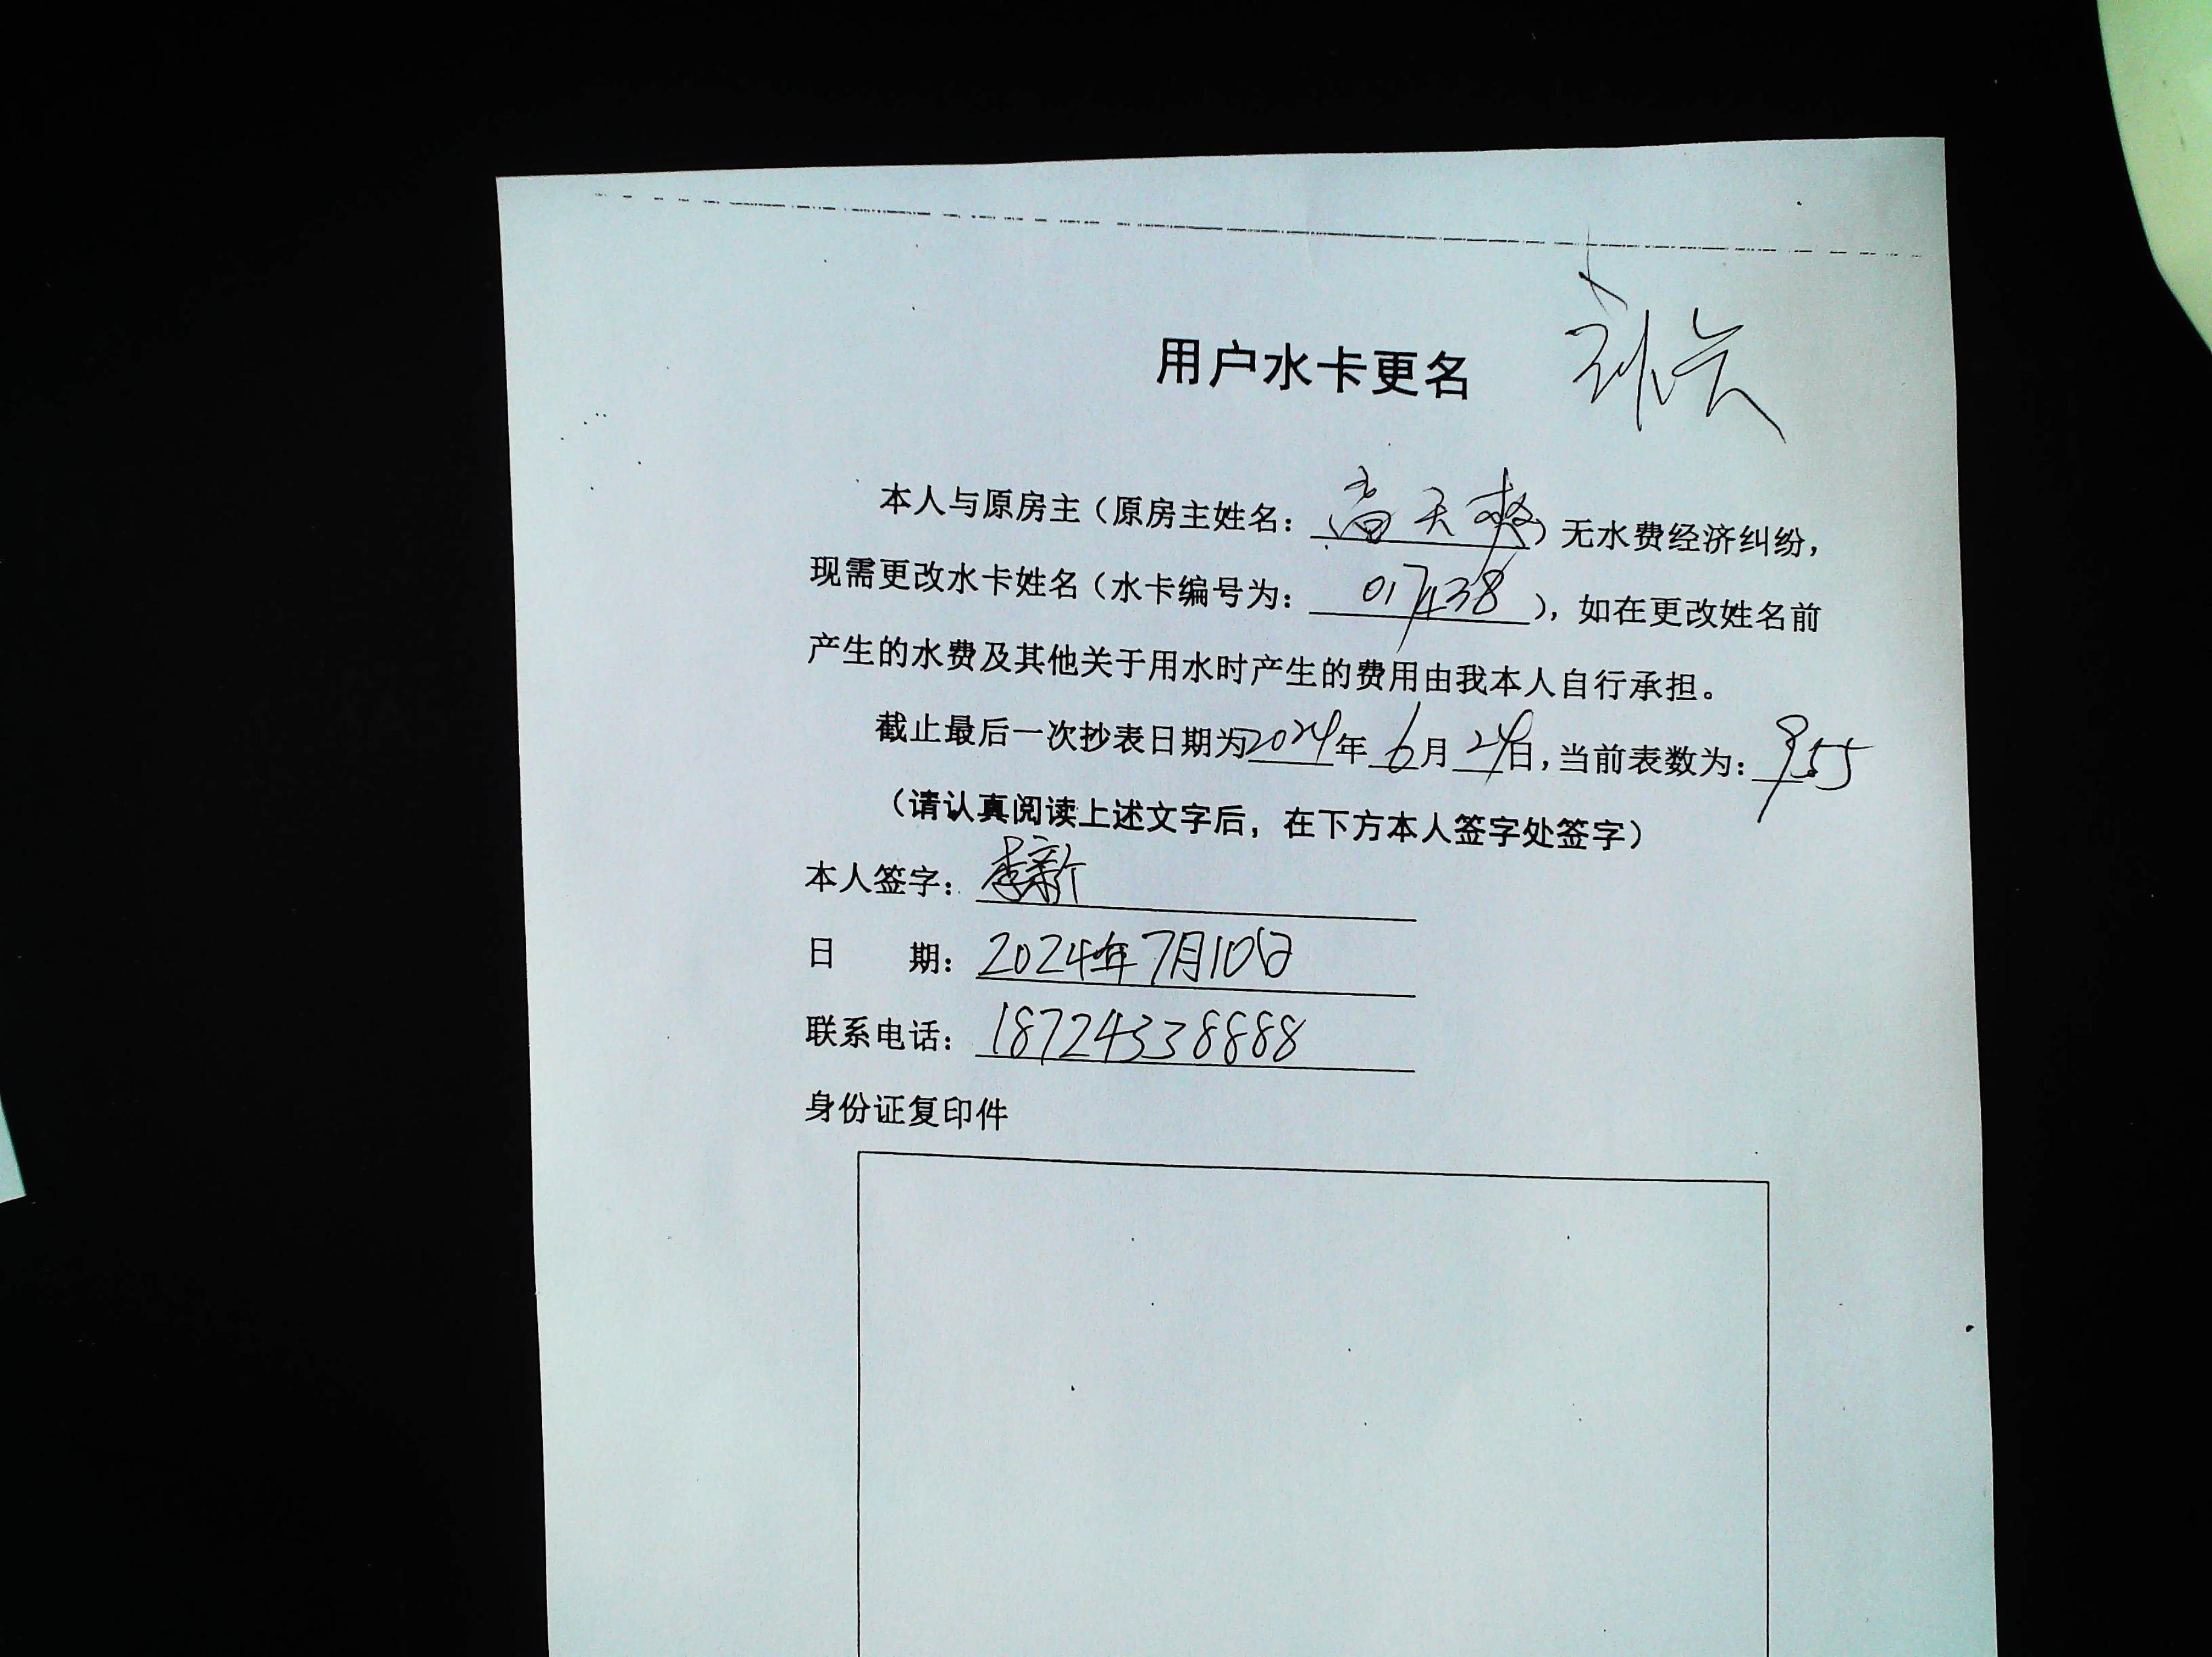 用户水卡更名
本人与原房主（原房主姓名：高天爽）无水费经济纠纷，
现需更改水卡姓名（水卡编号为：017438），如在更改姓名前
产生的水费及其他关于用水时产生的费用由我本人自行承担。
截止最后一次抄表日期为2024年6月24日，当前表数为：955
（请认真阅读上述文字后，在下方本人签字处签字）
本人签字：李新
日 期：2024年7月10日
联系电话：18724338888
身份证复印件